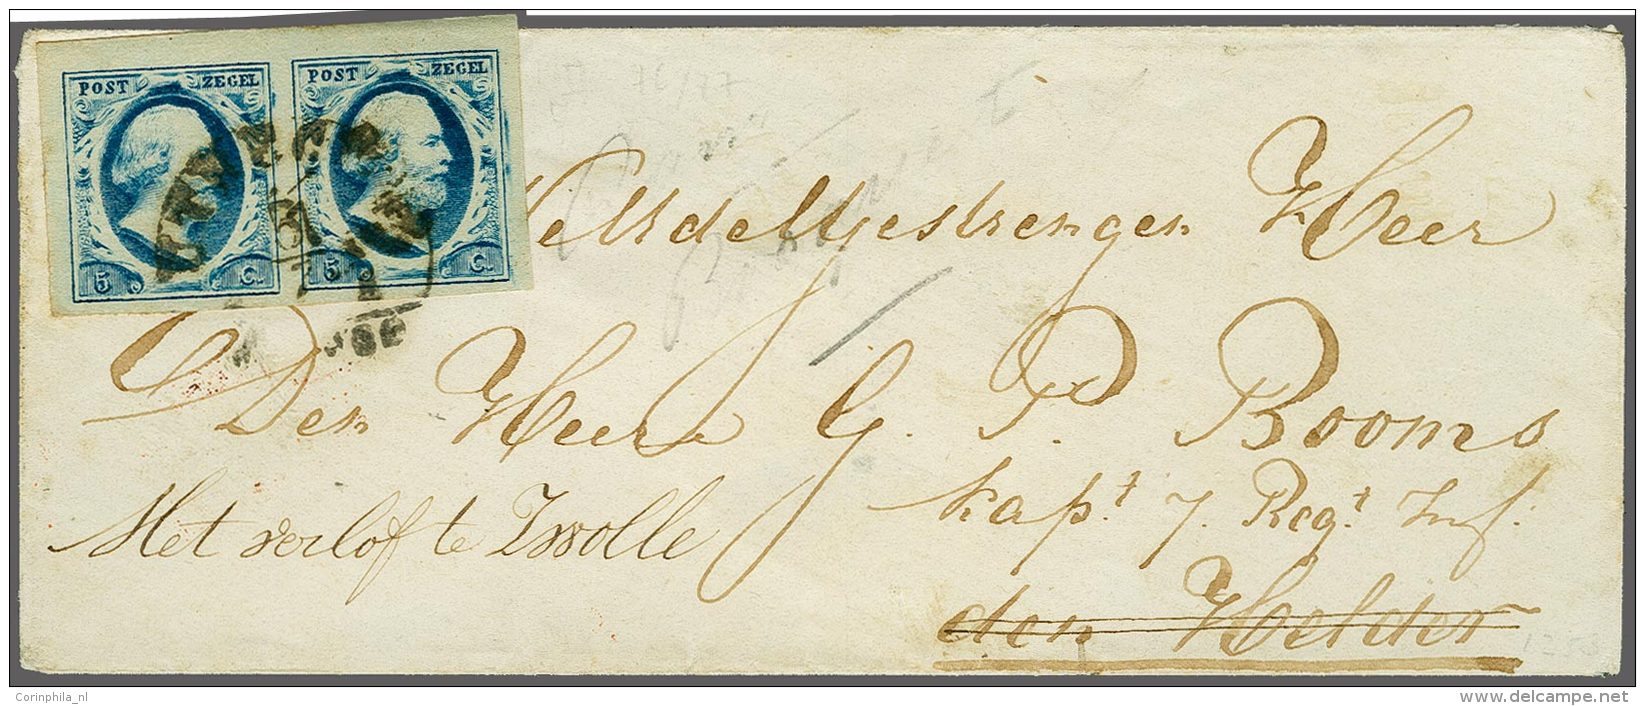 POST ZEGEL POST ZEGEL
5 C. 5 C.
WelEdelGestrengen Heer
Den Heer G. P. Booms
kapt. 7. Regt. Inf.
Met verlof te Zwolle
den Helder
Corinphila_nl
delcampe.net